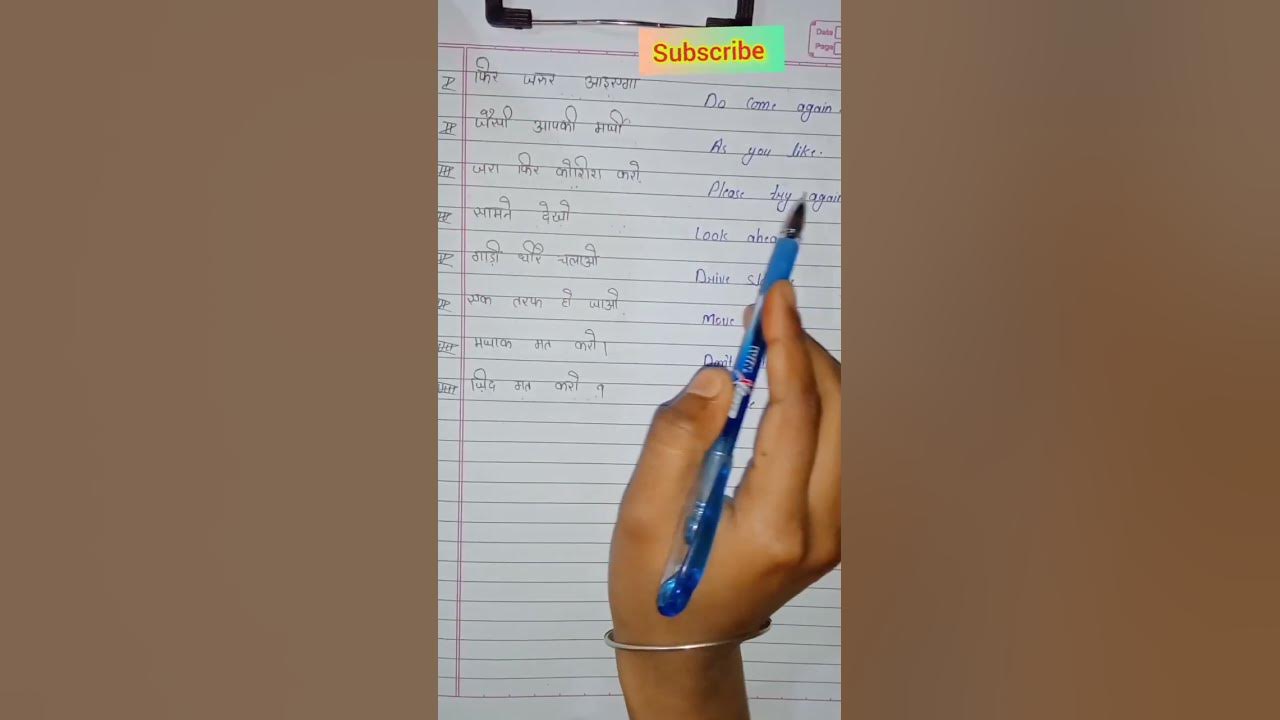 Subscribe
Date
Page
I फिर जरूर आइएगा Do come again.
II जैसी आपकी मर्जी As you like.
III जरा फिर कोशिश करो Please try again
IV सामने देखो Look ahea
V गाड़ी धीरे चलाओ Drive
VI एक तरफ हो जाओ Move
VII मजाक मत करो। Don't
VIII ज़िद मत करो